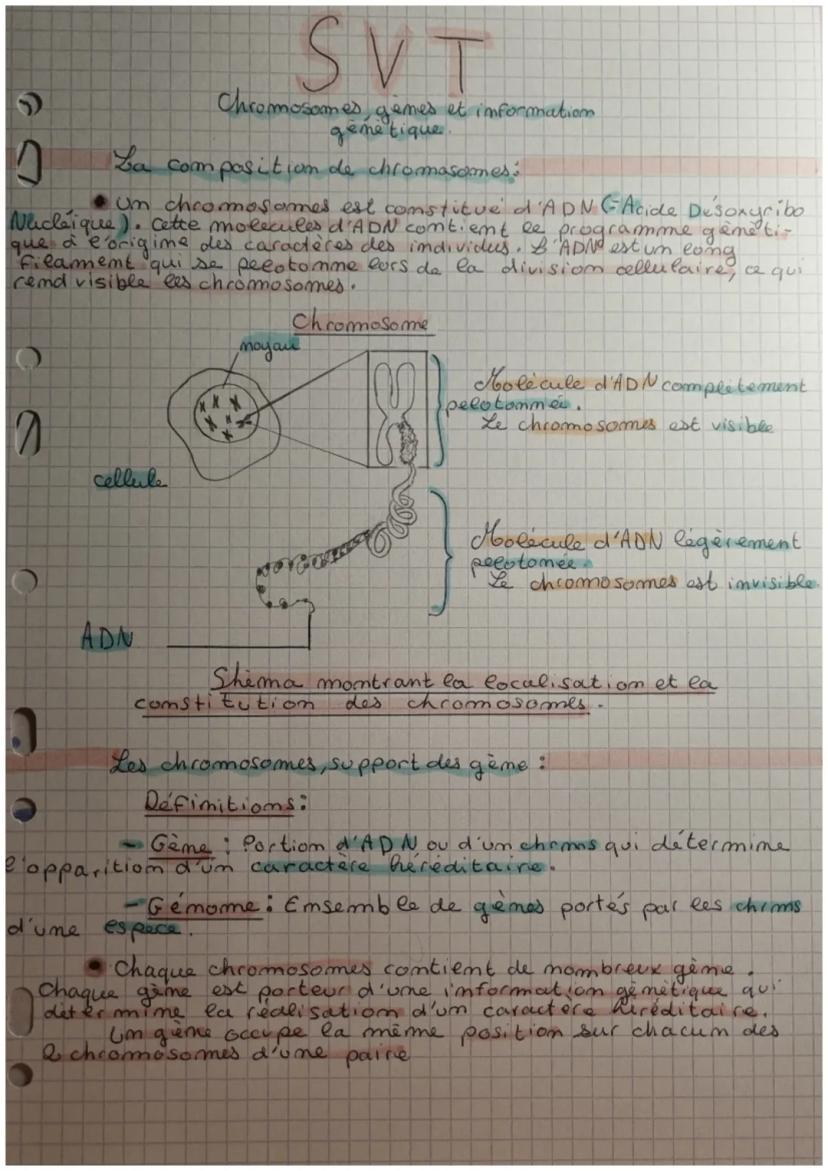 SVT
Chromosomes, gènes et information
génétique.
La composition de chromasomes:
• Un chromosomes est constitué d'ADN (=Acide Désoxyribo
Nucléique). Cette molécules d'ADN contient le programme généti-
que à l'origine des caractères des individus. L'ADN est un long
filament qui se pelotonne lors de la division cellulaire, ce qui
rend visible les chromosomes.
Chromosome
noyau
Molécule d'ADN complètement
pelotonnée.
Le chromosomes est visible
cellule
Molécule d'ADN légèrement
pelotonée.
Le chromosomes est invisible.
ADN
Shéma montrant la localisation et la
constitution des chromosomes.
Les chromosomes, support des gène :
Définitions:
- Gène : Portion d'ADN ou d'un chroms qui détermine
l'opparition d'un caractère héréditaire.
- Génome : Ensemble de gènes portés par les chrms
d'une espece.
• Chaque chromosomes contient de nombreux gène.
Chaque gène est porteur d'une information génétique qui
détermine la réalisation d'un caractère héréditaire.
Un gène occupe la même position sur chacun des
2 chromosomes d'une paire